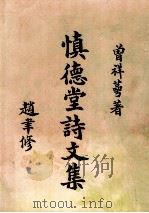 曾祥萼著
慎德堂詩文集
趙聿修